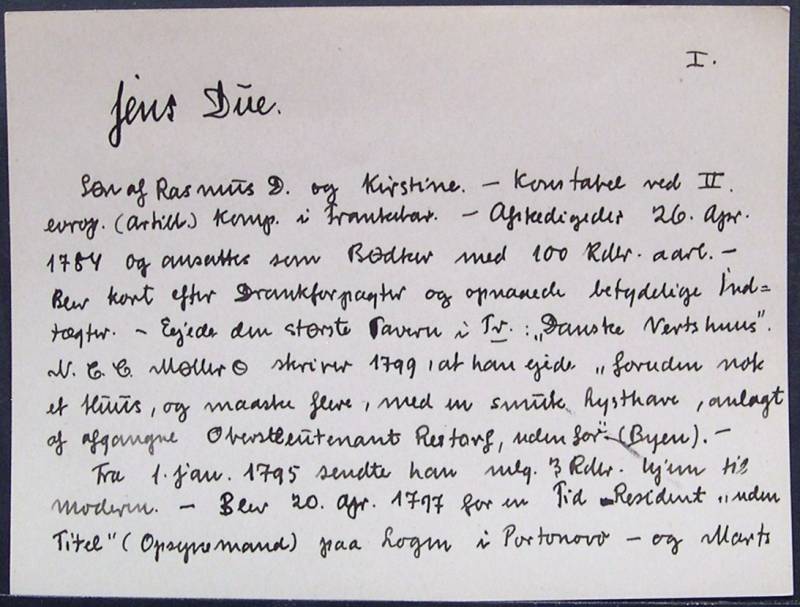 I.
Jens Due.
Søn af Rasmus D. og Kirstine. — Konstabel ved II.
europ. (Artill.) Komp. i Trankebar. — Afskedigedes 26. Apr.
1784 og ansattes som Bødker med 100 Rdlr. aarl. —
Blev kort efter Drankforpagter og opnaaede betydelige Ind=
tægter. — Ejede den største Tavern i Tr.: „Danske Vertshuus".
N. C. C. Møller skriver 1799, at han ejede „foruden nok
et Huus, og maaske flere, med en smuk Lysthave, anlagt
af afgangne Oberstleutenant Restorf, uden for" (Byen). —
Fra 1. Jan. 1795 sendte han mlg. 3 Rdlr. hjem til
Moderen. — Blev 20. Apr. 1797 for en Tid Resident „uden
Titel" (Opsynsmand) paa Logen i Portonovo — og Marts